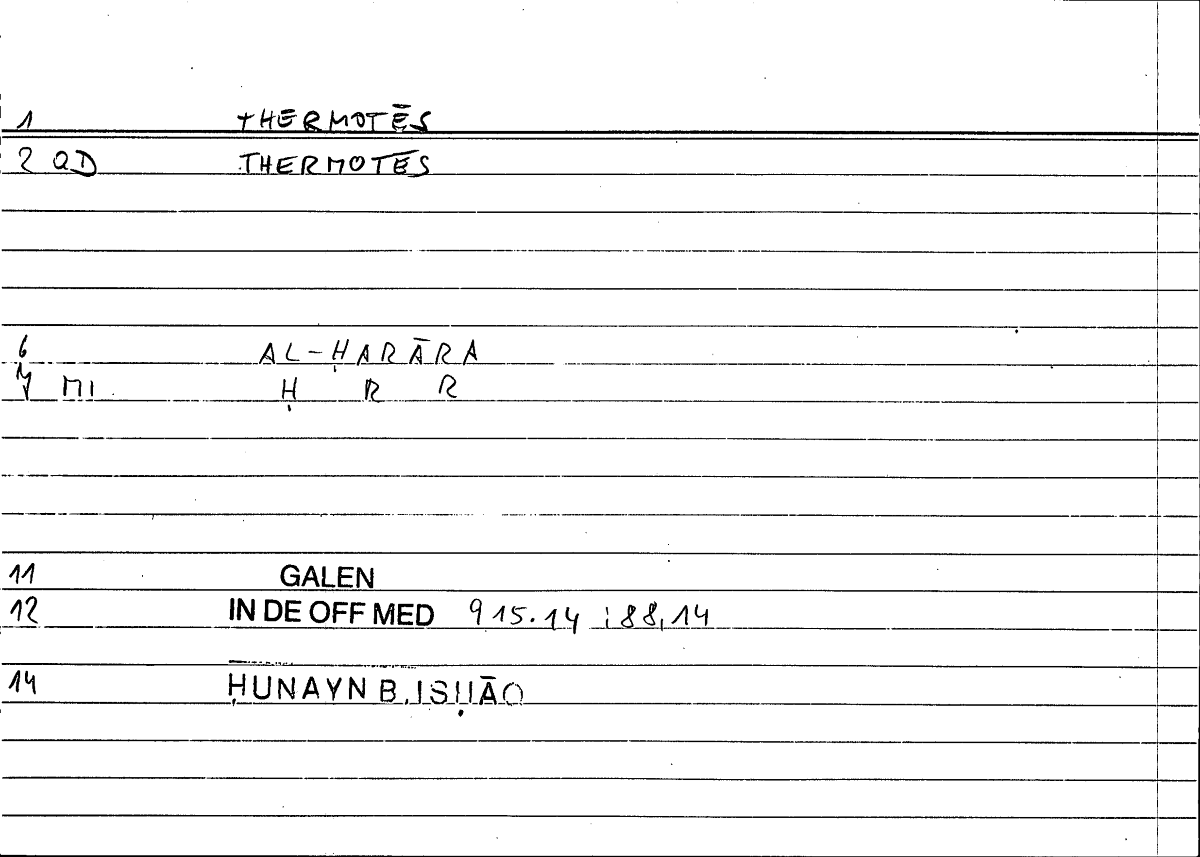 1 THERMOTĒS
2 QD THERMOTĒS
6 AL-ḤARĀRA
7 MI Ḥ R R
11 GALEN
12 IN DE OFF MED 915.14 ; 88,14
14 ḤUNAYN B. ISḤĀQ